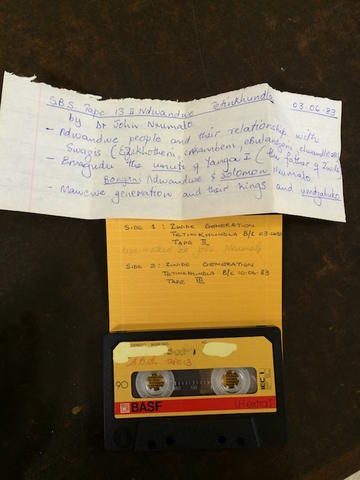 S.B.S. Tape 13 II Ndwandwe Tetinkhundla 03-06-83
by Dr John Nxumalo
- Ndwandwe people and their relationship with
Swazis (Ezikhotheni, enkambeni, ebulangeni,
- the umuti of Yanga I (the father of Zwide
Bongini Ndwandwe & Solomon Nxumalo
- Mawewe generation and their kings and
SIDE 1: ZWIDE GENERATION
TETINKHUNDLA B/C 03-06-83
TAPE II
by John Nxumalo
SIDE 2: ZWIDE GENERATION
TETINKHUNDLA B/C 10-06-83
TAPE III
90
BASF
LH extra I
IEC I